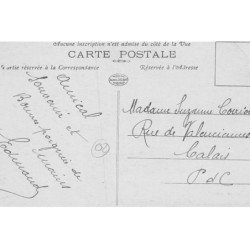 Aucune inscription n'est admise du côté de la Vue
CARTE POSTALE
Partie réservée à la Correspondance
Réservée à l'Adresse
Amical
Souvenir et
Bonnes poignées de
mains
Edmond
Madame Suzanne
Rue de Valenciennes
Calais
P d C